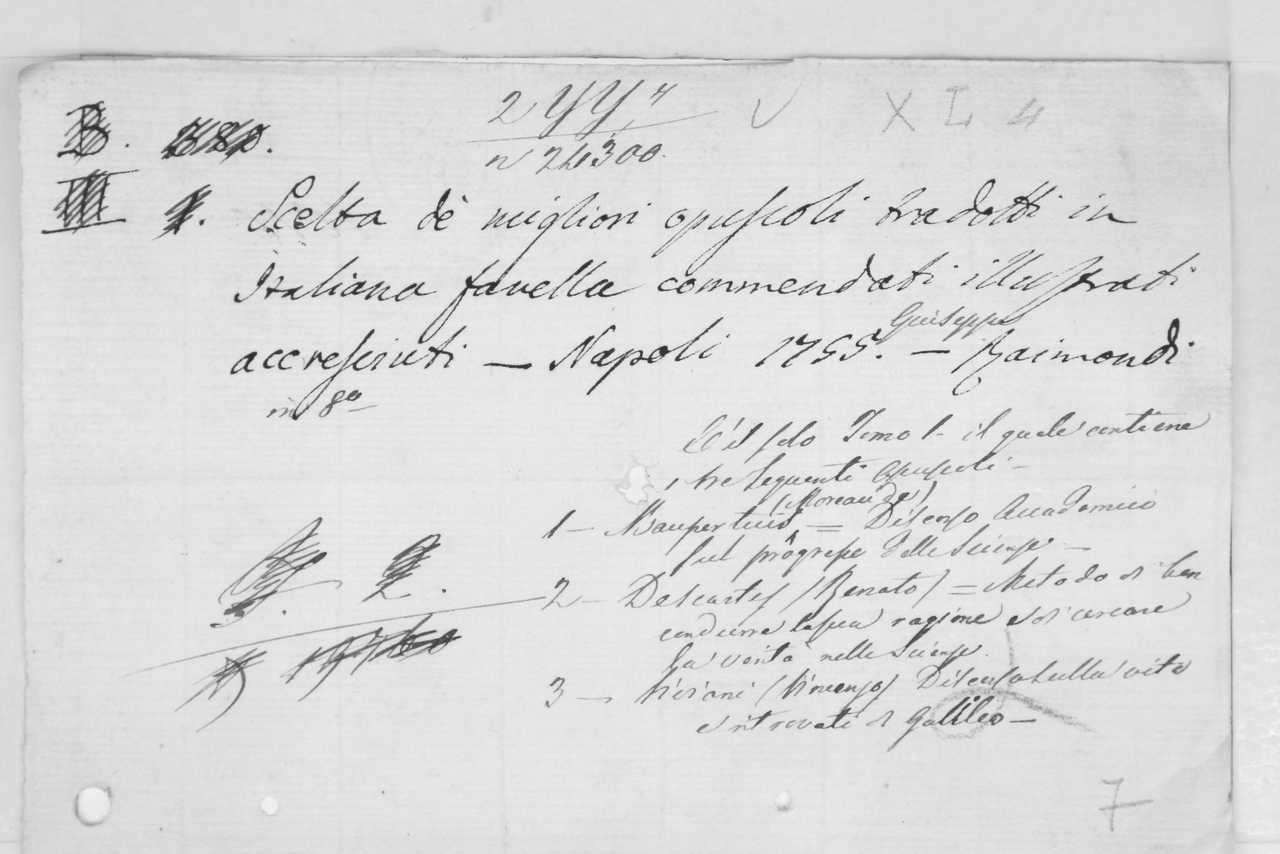 2 YY 4 XL 4
B.
n 24300.
III 1. Scelta dè migliori opuscoli tradotti in
Italiana favella commendati illustrati
Giuseppe
accresciuti — Napoli 1755. — Raimondi
in 8°
C'è il solo Tomo 1- il quale contiene
i tre seguenti opuscoli —
(Moreau de)
1 — Maupertuis = Discorso Accademico
sul progresso delle Scienze —
2 — Descartes (Renato) = Metodo di ben
condurre la sua ragione e di cercare
la verità nelle Scienze.
3 — Viviani (Vincenzo) Discorso sulla vita
e ritrovati di Galileo —
7